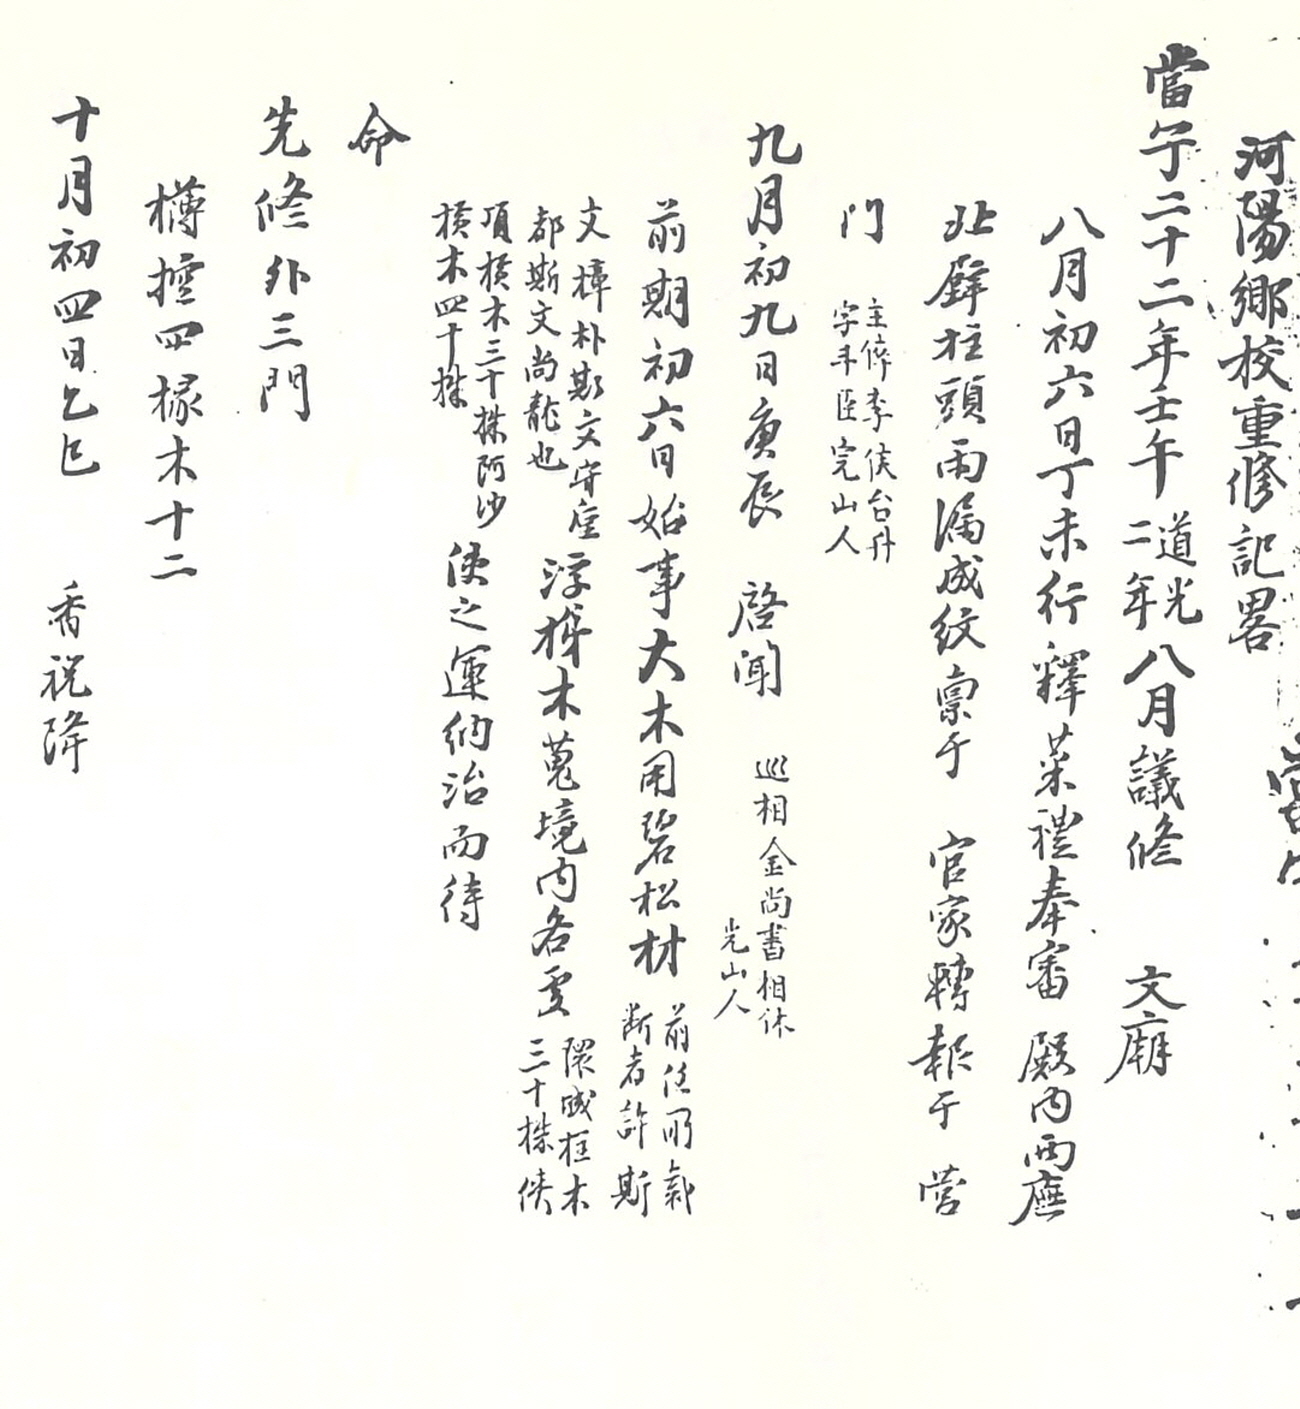 河陽鄕校重修記畧
當宁二十二年壬午 道光二年 八月議修 文廟
八月初六日丁未行釋菜禮奉審 殿內兩廡
北壁柱頭雨漏成紋稟于 官家轉報于 營
門 主倅李侯台升字斗臣完山人
九月初九日庚辰 啓聞 巡相金尙書相休光山人
前期初六日始事大木用碧松材 前任斯斷者許斯
文樟朴斯文守
都斯文尙龍也 浮椽木蒐境內各 隈 框木三十株使
頂橫木三十株阿沙
橫木四十株 使之運納治而待
命
先修外三門
樽 四椽木十二
十月初四日乙巳 香祝降